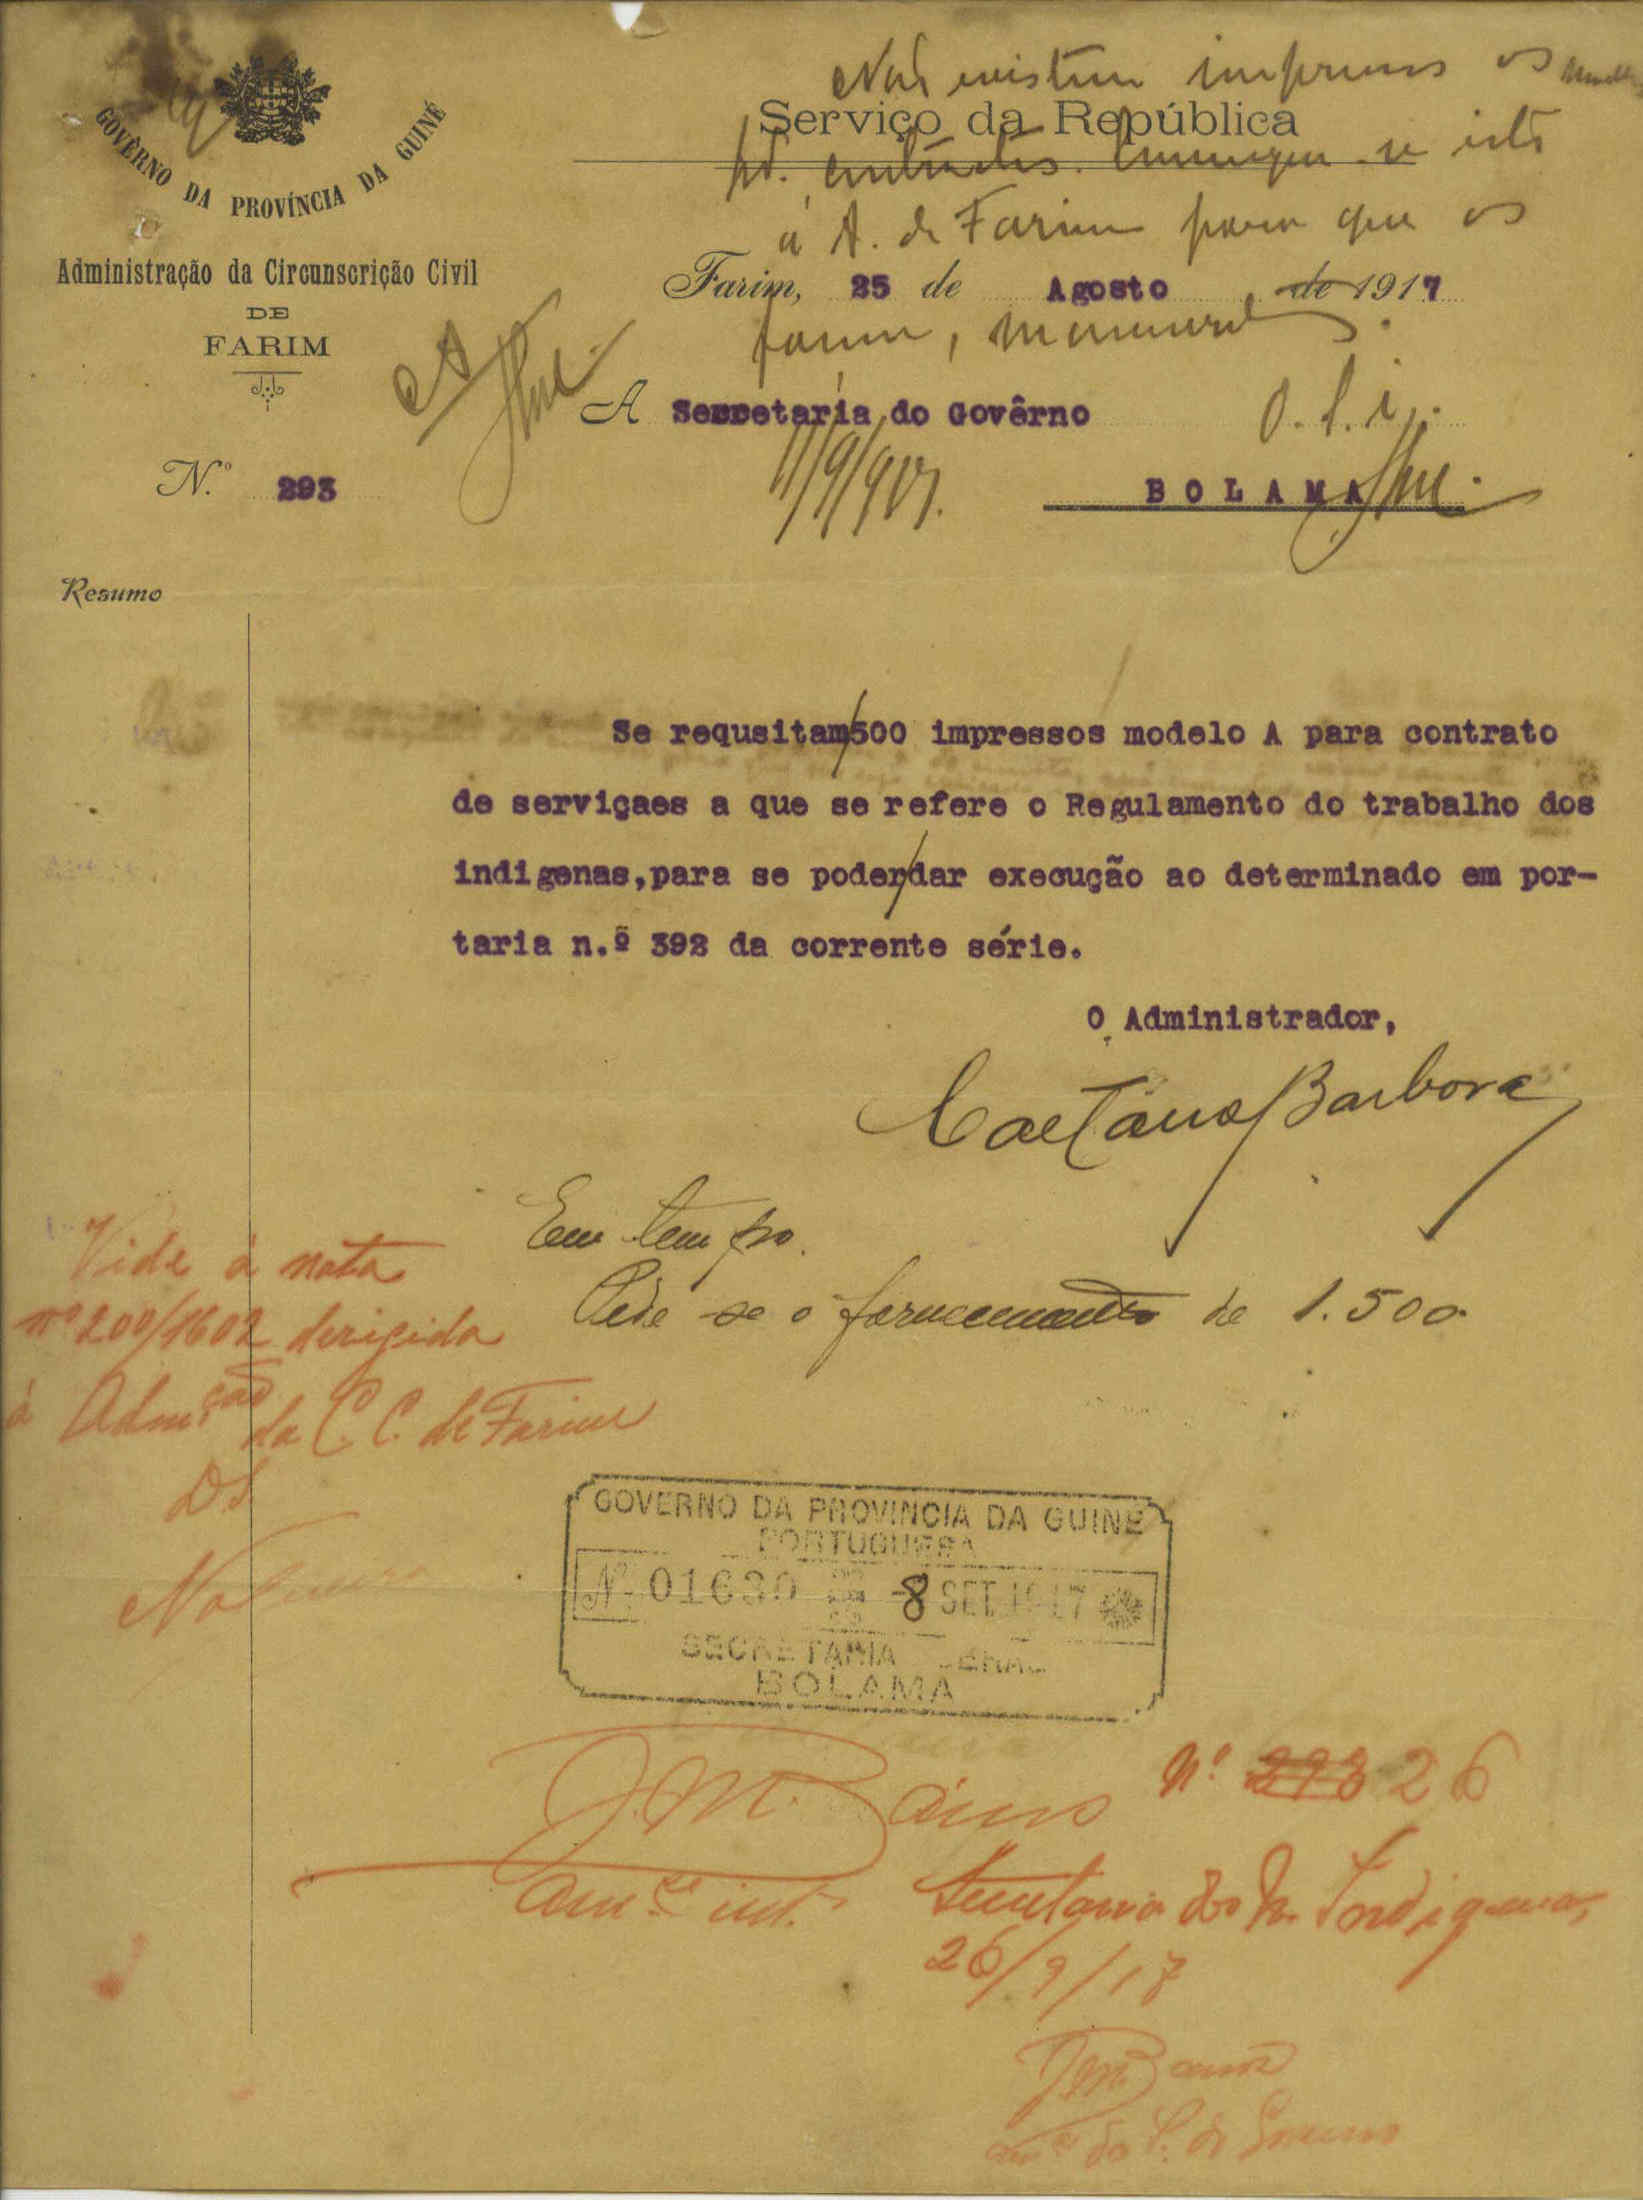 GOVÊRNO DA PROVÍNCIA DA GUINÉ
Administração da Circunscrição Civil
DE
FARIM
N.º 293
Não existem impressos os
Serviço da República
contratos. Comunique-se isto
á A. de Farim para que os
Farim, 25 de Agosto de 1917
A Secretaria do Govêrno
11/9/917.
BOLAMA
Resumo
Se requsitam/500 impressos modelo A para contrato
de serviçaes a que se refere o Regulamento do trabalho dos
indigenas,para se poder/dar execução ao determinado em por-
taria n.º 392 da corrente série.
O Administrador,
Caetano Barbosa
Em tempo.
Pede-se o fornecimento de 1.500
Vide á nota
nº 200/1602 dirigida
á Adm.ção da C. C. de Farim
GOVERNO DA PROVINCIA DA GUINÉ
PORTUGUESA
Nº 01630 -8 SET. 1917
SECRETARIA GERAL
BOLAMA
Nº 293 26
Secretaria dos N. Indigenas,
26/9/17